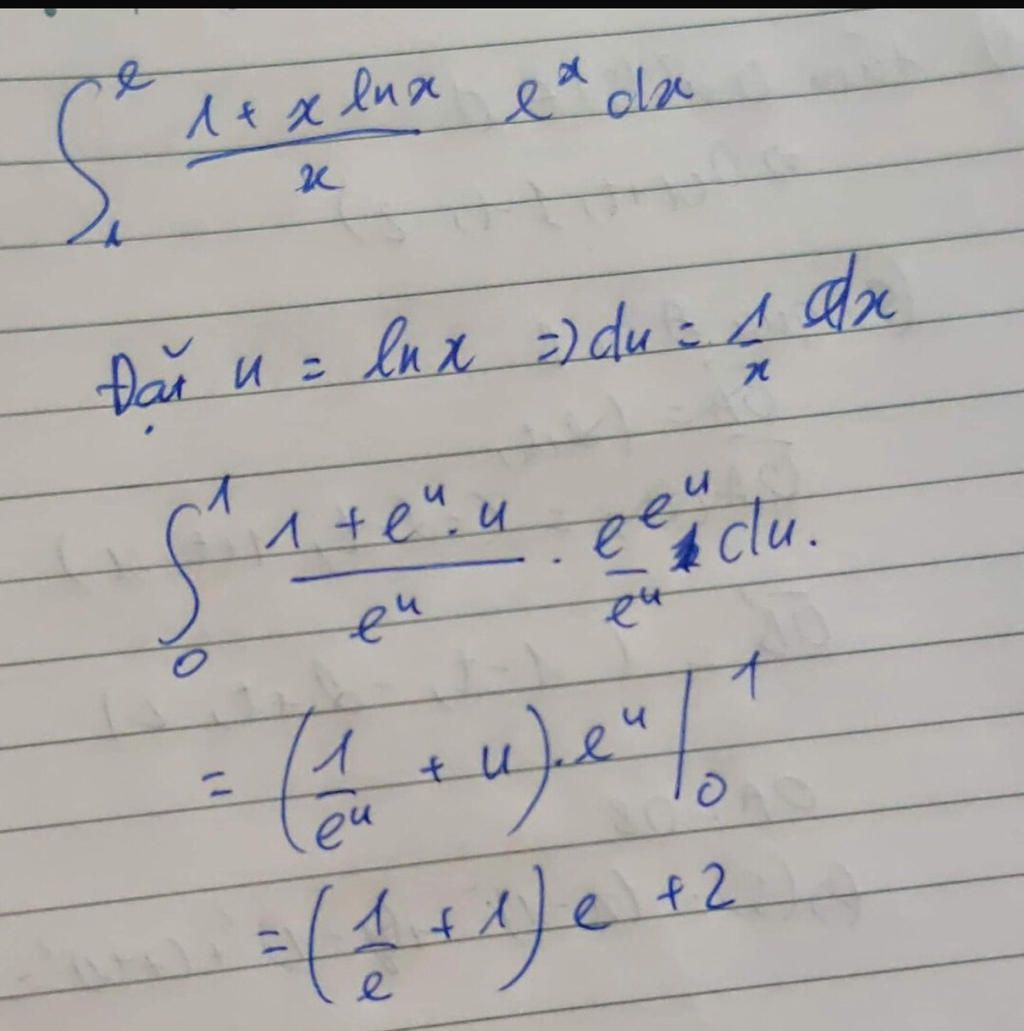 ∫₁ᵉ (1 + x ln x)/x eˣ dx
Đặt u = ln x => du = 1/x dx
∫₀¹ (1 + eᵘ . u)/eᵘ . e^(eᵘ)/eᵘ du.
= (1/eᵘ + u) . eᵘ |₀¹
= (1/e + 1) e + 2